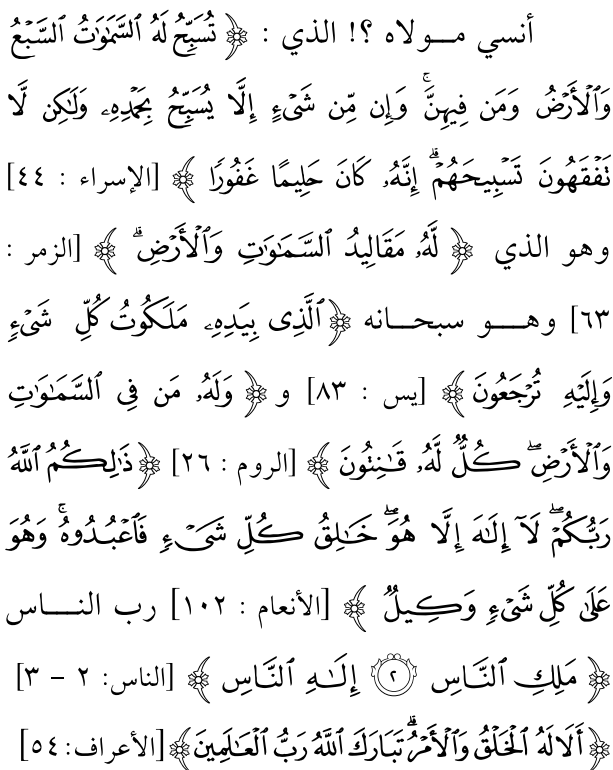 أنسي مــولاه ؟! الذي : ﴿ تُسَبِّحُ لَهُ ٱلسَّمَٰوَٰتُ ٱلسَّبۡعُ
وَٱلۡأَرۡضُ وَمَن فِيهِنَّۚ وَإِن مِّن شَيۡءٍ إِلَّا يُسَبِّحُ بِحَمۡدِهِۦ وَلَٰكِن لَّا
تَفۡقَهُونَ تَسۡبِيحَهُمۡۗ إِنَّهُۥ كَانَ حَلِيمًا غَفُورٗا ﴾ [الإسراء : ٤٤]
وهو الذي ﴿ لَّهُۥ مَقَالِيدُ ٱلسَّمَٰوَٰتِ وَٱلۡأَرۡضِۗ ﴾ [الزمر :
٦٣] وهــو سبحــانه ﴿ ٱلَّذِي بِيَدِهِۦ مَلَكُوتُ كُلِّ شَيۡءٖ
وَإِلَيۡهِ تُرۡجَعُونَ ﴾ [يس : ٨٣] و ﴿ وَلَهُۥ مَن فِي ٱلسَّمَٰوَٰتِ
وَٱلۡأَرۡضِۖ كُلّٞ لَّهُۥ قَٰنِتُونَ ﴾ [الروم : ٢٦] ﴿ ذَٰلِكُمُ ٱللَّهُ
رَبُّكُمۡۖ لَآ إِلَٰهَ إِلَّا هُوَۖ خَٰلِقُ كُلِّ شَيۡءٖ فَٱعۡبُدُوهُۚ وَهُوَ
عَلَىٰ كُلِّ شَيۡءٖ وَكِيلٞ ﴾ [الأنعام : ١٠٢] رب النــاس
﴿ مَلِكِ ٱلنَّاسِ ٢ إِلَٰهِ ٱلنَّاسِ ﴾ [الناس: ٢ - ٣]
﴿ أَلَا لَهُ ٱلۡخَلۡقُ وَٱلۡأَمۡرُۗ تَبَارَكَ ٱللَّهُ رَبُّ ٱلۡعَٰلَمِينَ ﴾ [الأعراف: ٥٤]